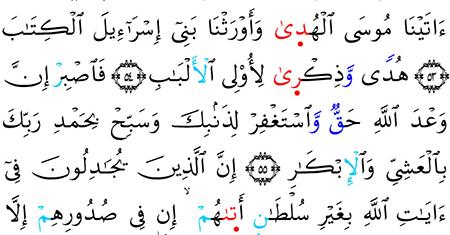 ءَاتَيْنَا مُوسَى ٱلْهُدِىٰ وَأَوْرَثْنَا بَنِىٓ إِسْرَآءِيلَ ٱلْكِتَٰبَ
۝٥٣ هُدًى وَّذِكْرِىٰ لِأُو۟لِى ٱلْأَلْبَٰبِ ۝٥٤ فَٱصْبِرْ إِنَّ
وَعْدَ ٱللَّهِ حَقٌّ وَّٱسْتَغْفِرْ لِذَنۢبِكَ وَسَبِّحْ بِحَمْدِ رَبِّكَ
بِٱلْعَشِىِّ وَٱلْإِبْكَٰرِ ۝٥٥ إِنَّ ٱلَّذِينَ يُجَٰدِلُونَ فِىٓ
ءَايَٰتِ ٱللَّهِ بِغَيْرِ سُلْطَٰنٍ أَتَىٰهُمْ ۙ إِن فِى صُدُورِهِمْ إِلَّا